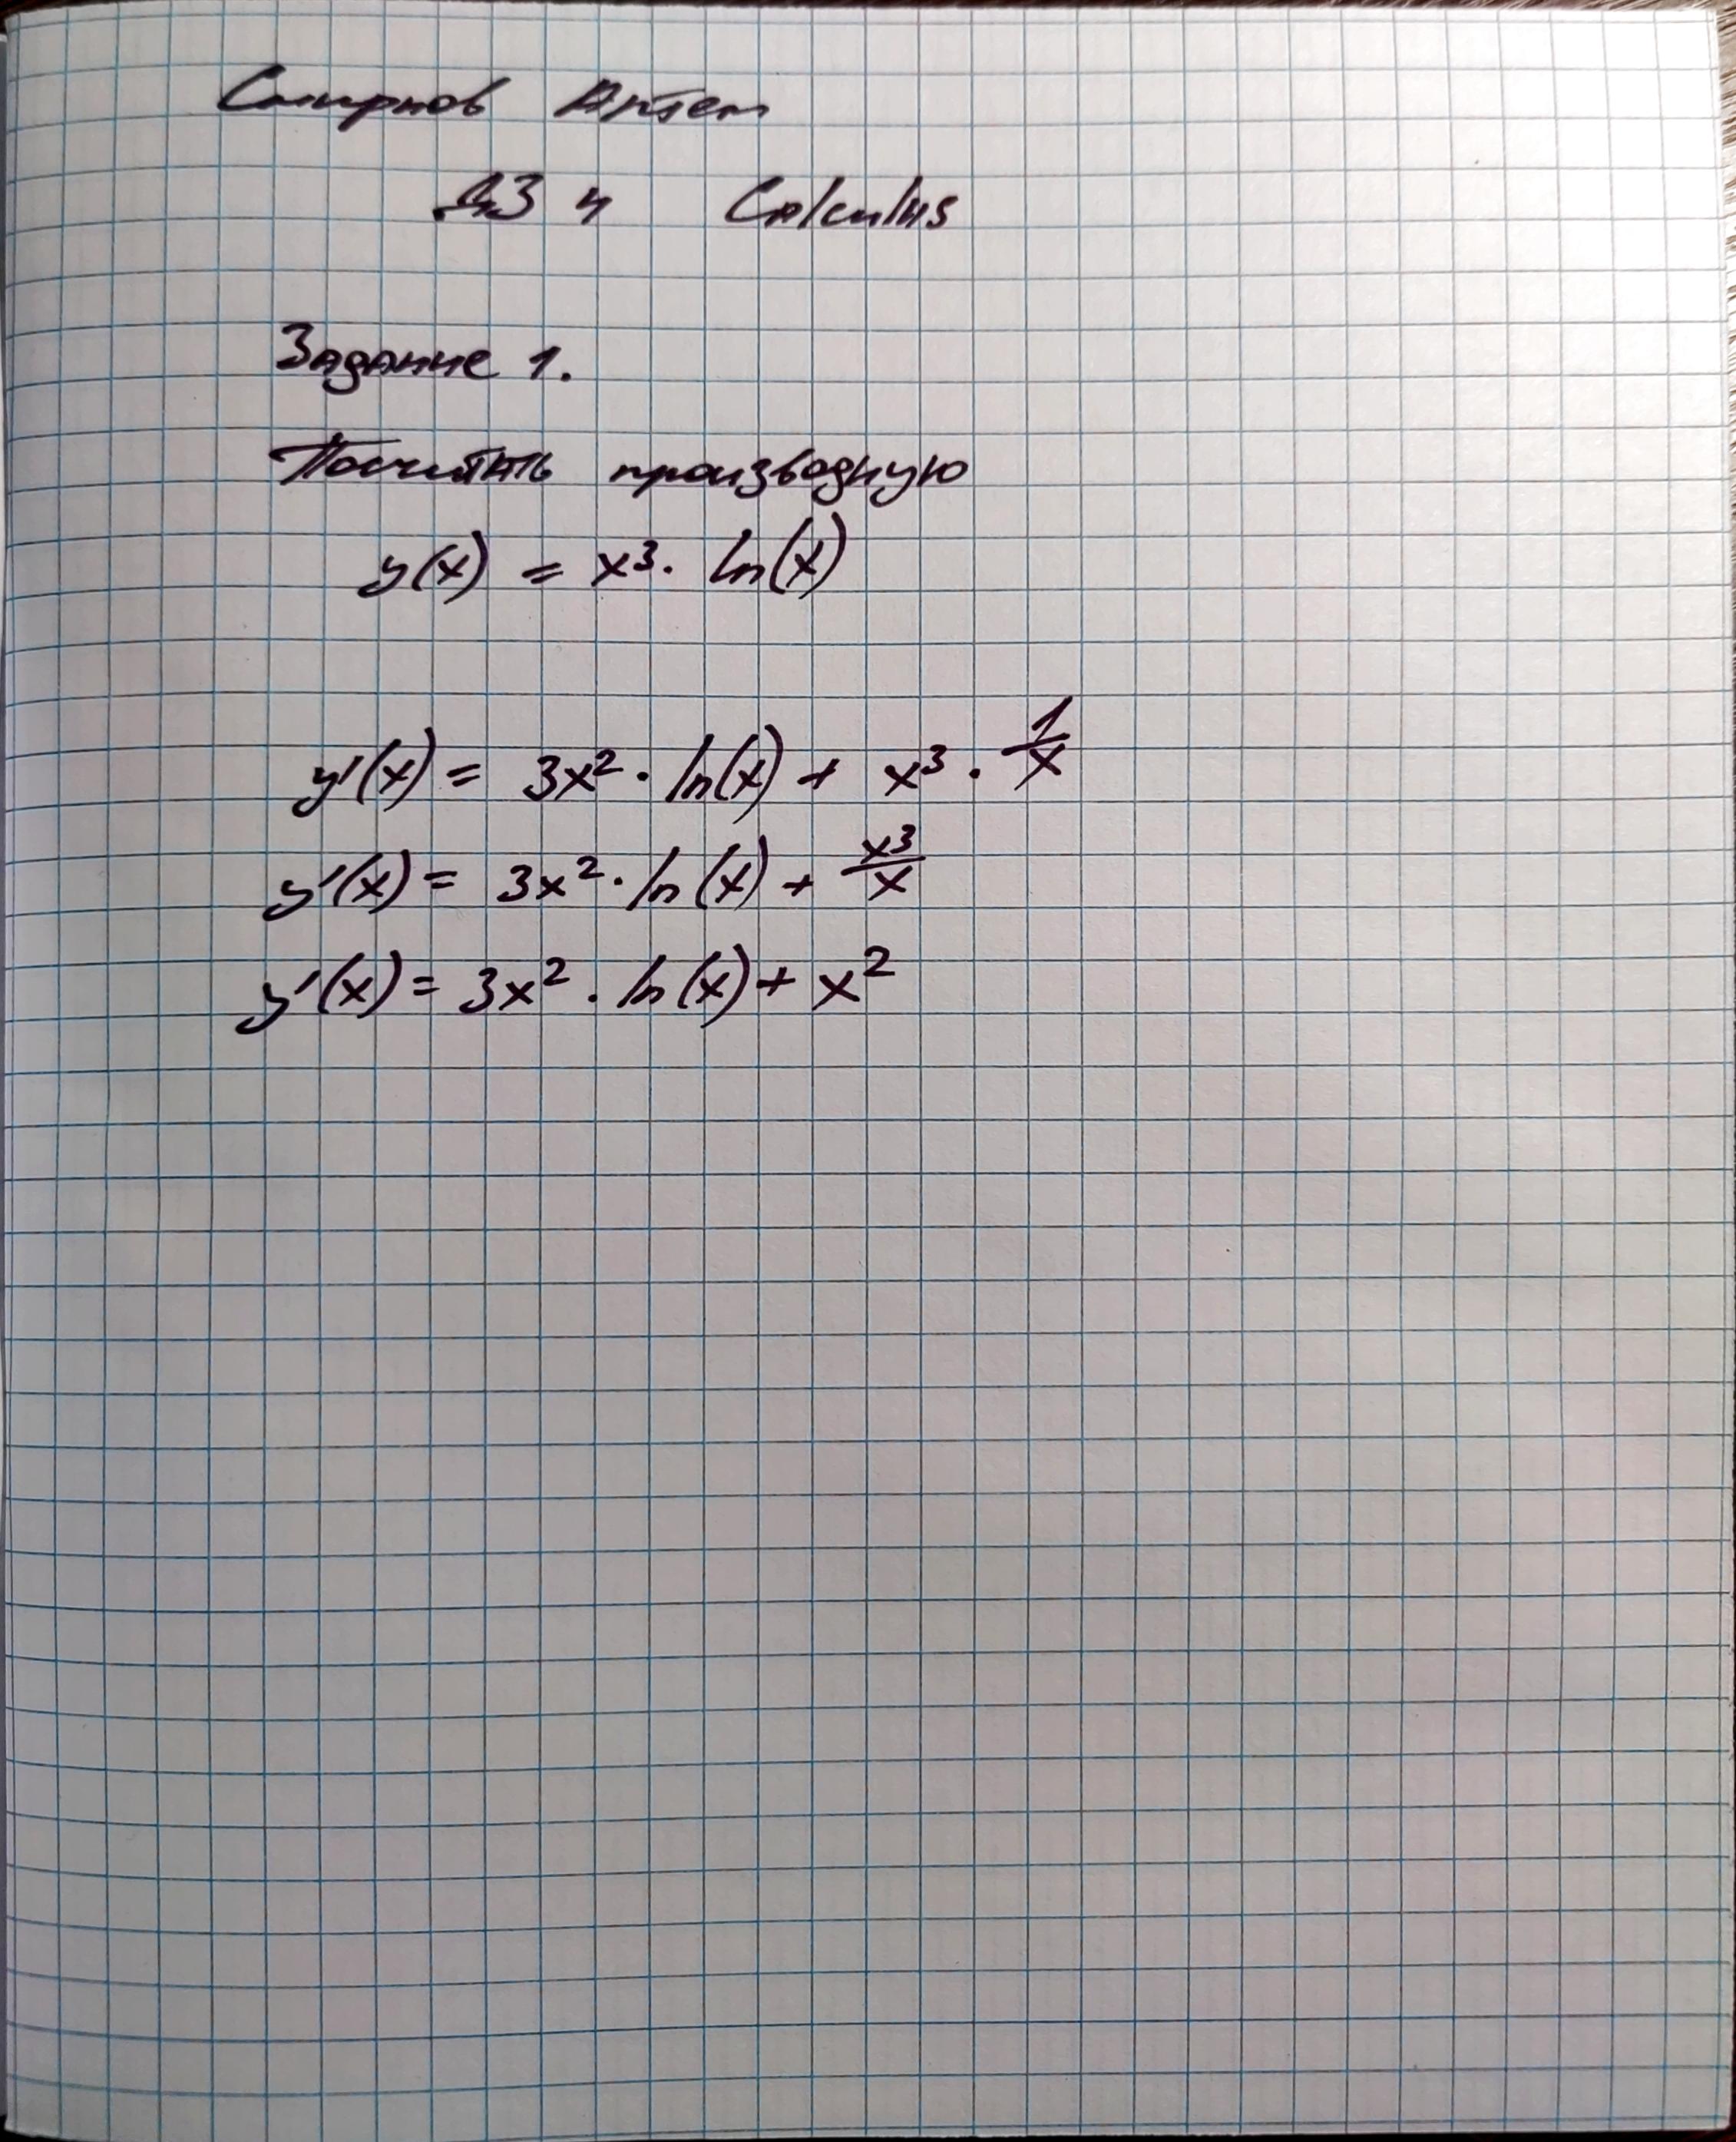 Смирнов Артем
ДЗ 4 Calculus
Задание 1.
Посчитать производную
y(x) = x³ · ln(x)
y'(x) = 3x² · ln(x) + x³ · 1/x
y'(x) = 3x² · ln(x) + x³/x
y'(x) = 3x² · ln(x) + x²